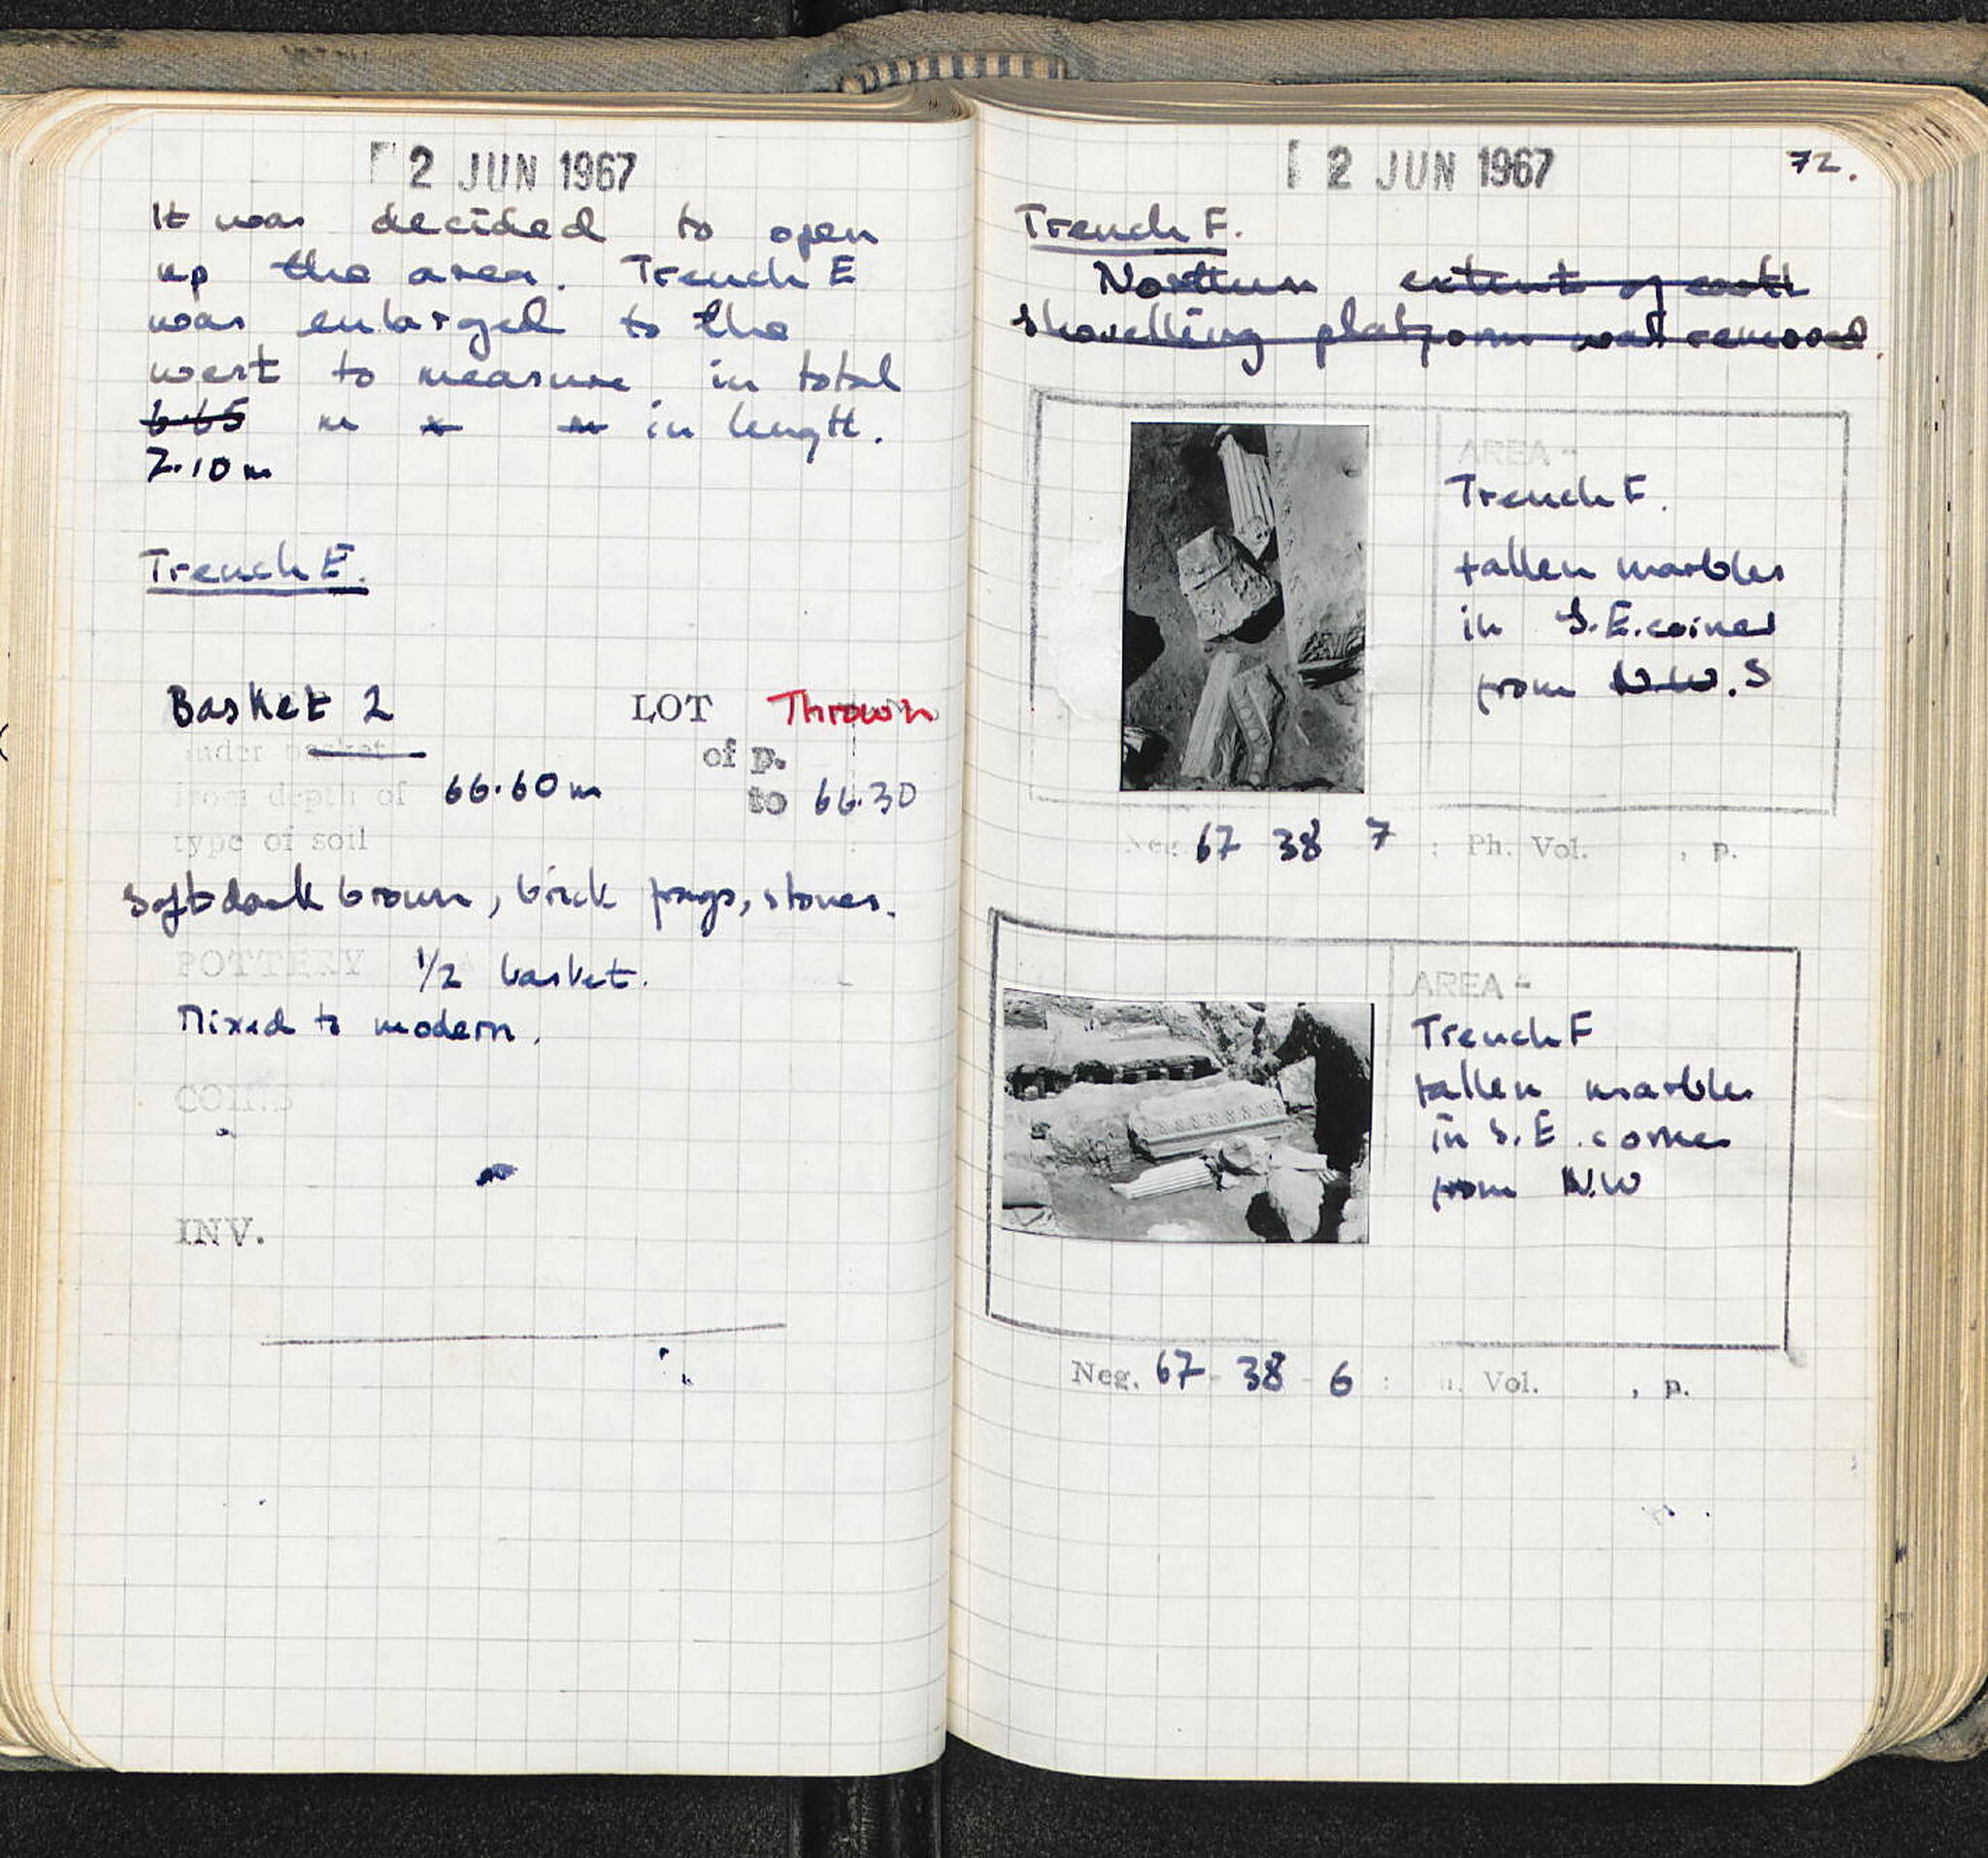 2 JUN 1967
It was decided to open
up the area. Trench E
was enlarged to the
west to measure in total
6.65 m x m in length.
7.10 m
Trench E.
Basket 2 LOT Thrown
under basket of p.
from depth of 66.60 m to 66.30
type of soil
soft dark brown, brick frags, stones.
POTTERY 1/2 basket.
Mixed to modern.
COINS
INV.
2 JUN 1967 72.
Trench F.
Northern extent of earth
shovelling platform was removed.
AREA -
Trench F.
fallen marbles
in S.E. corner
from N.W. S
Neg. 67 38 7 : Ph. Vol. , p.
AREA -
Trench F
fallen marbles
in S.E. corner
from N.W
Neg. 67 - 38 - 6 : Ph. Vol. , p.